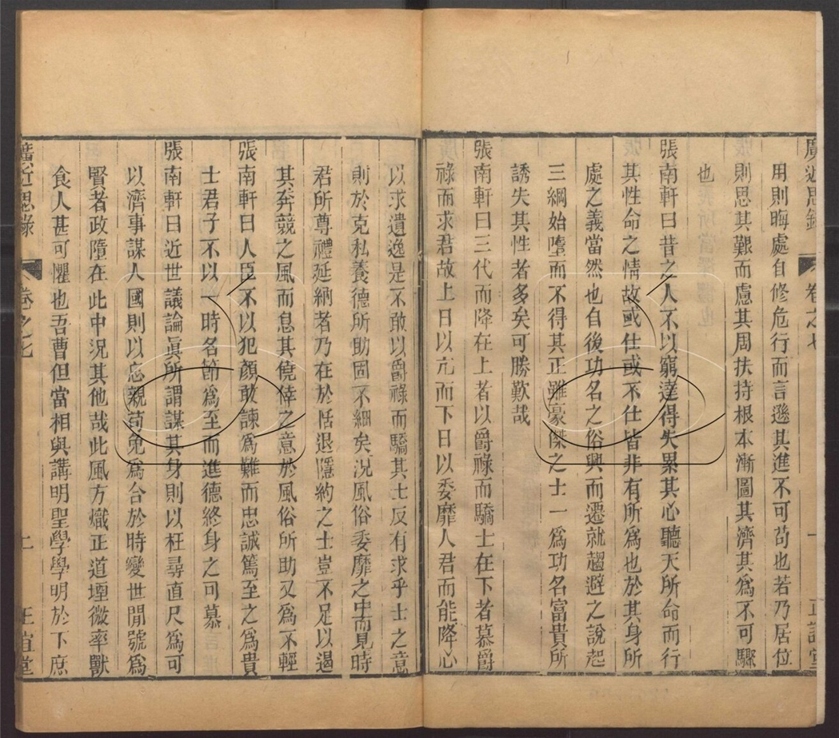 廣近思錄
卷之七
一
正誼堂
用則晦處自修危行而言遜其進不可苟也若乃居位
則思其艱而慮其周扶持根本漸圖其濟其爲不可驟
也
張南軒曰昔之人不以窮達得失累其心聽天所命而行
其性命之情故或仕或不仕皆非有所爲也於其身所
處之義當然也自後功名之俗興而遷就趨避之說起
三綱始墮而不得其正雖豪傑之士一爲功名富貴所
誘失其性者多矣可勝歎哉
張南軒曰三代而降在上者以爵祿而驕士在下者慕爵
祿而求君故上日以亢而下日以委靡人君而能降心
以求遺逸是不敢以爵祿而驕其士反有求乎士之意
則於克私養德所助固不細矣況風俗委靡之中而見時
君所尊禮延納者乃在於恬退隱約之士豈不足以遏
其奔競之風而息其僥倖之意於風俗所助又爲不輕
張南軒曰人臣不以犯顏敢諫爲難而忠誠篤至之爲貴
士君子不以一時名節爲至而進德終身之可慕
張南軒曰近世議論眞所謂謀其身則以枉尋直尺爲可
以濟事謀人國則以忘親苟免爲合於時變世閒號爲
賢者政墮在此中況其他哉此風方熾正道堙微率獸
食人甚可懼也吾曹但當相與講明聖學學明於下庶
廣近思錄
卷之七
二
正誼堂